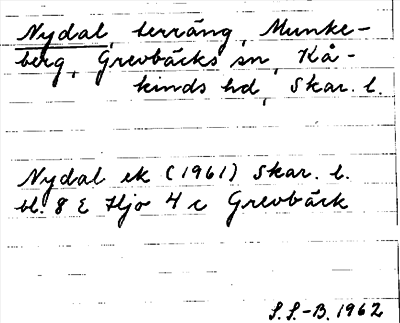 Nydal, terräng, Munke-
berg, Grevbäcks sn, Kå-
kinds hd, Skar. l.
Nydal ek (1961) Skar. l.
bl. 8 E Hjo 4 c Grevbäck
S.S.-B. 1962